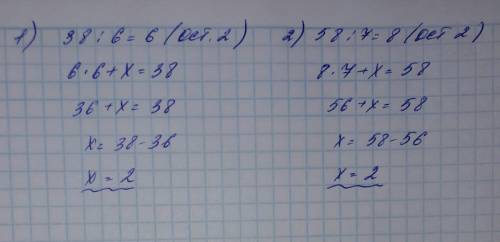 1) 38 : 6 = 6 (ост. 2)
6 · 6 + x = 38
36 + x = 38
x = 38 - 36
x = 2
2) 58 : 7 = 8 (ост 2)
8 · 7 + x = 58
56 + x = 58
x = 58 - 56
x = 2